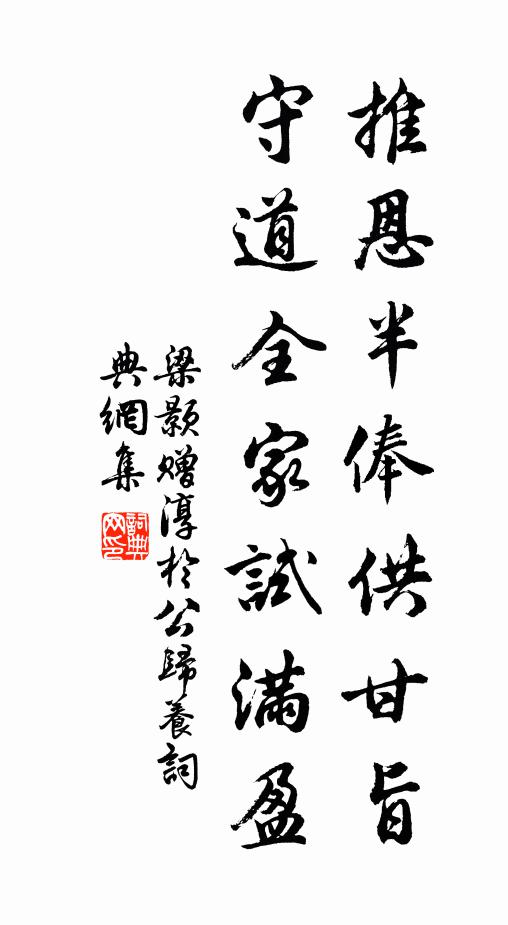 推恩半俸供甘旨
守道全家試滿盈
梁顥贈淳於公歸養詞
典網集
詞典網印